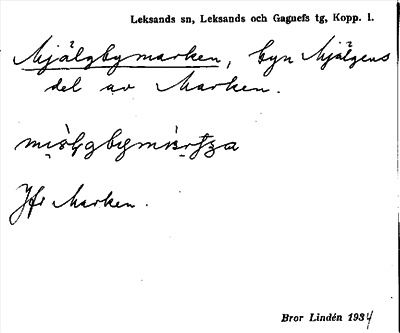 Leksands sn, Leksands och Gagnefs tg, Kopp. l.
Mjälgbymarken, byn Mjälgens
del av Marken.
Jfr Marken.
Bror Lindén 1934